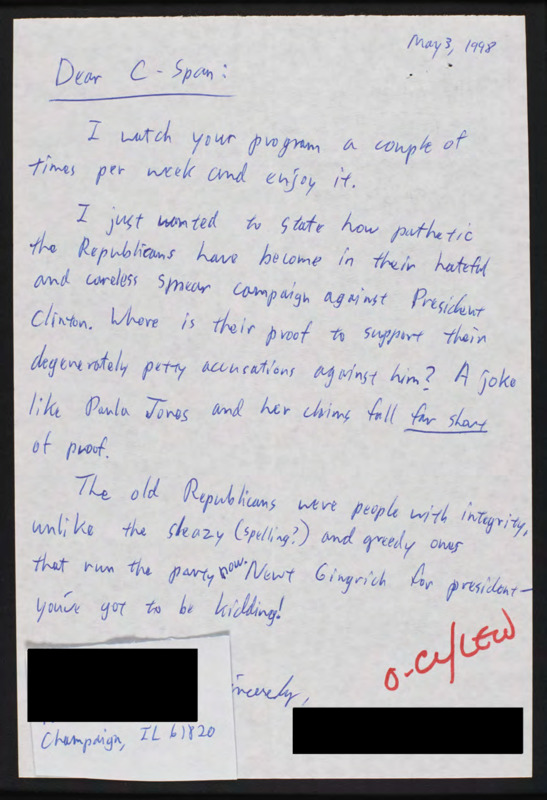 May 3, 1998
Dear C-Span:
I watch your program a couple of
times per week and enjoy it.
I just wanted to state how pathetic
the Republicans have become in their hateful
and careless smear campaign against President
Clinton. Where is their proof to support their
degenerately petty accusations against him? A joke
like Paula Jones and her claims fall far short
of proof.
The old Republicans were people with integrity,
unlike the sleazy (spelling?) and greedy ones
that run the party now. Newt Gingrich for president—
you've got to be kidding!
Sincerely,
Champaign, IL 61820